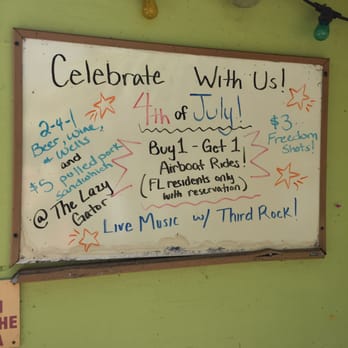 Celebrate With Us!
4th of July!
2-4-1
Beer, Wine,
& Wells
and
$5 pulled pork
sandwhich
@ The Lazy
Gator
Buy 1 - Get 1
Airboat Rides!
(FL residents only
with reservation)
$3
Freedom
Shots!
Live Music w/ Third Rock!
HE
A